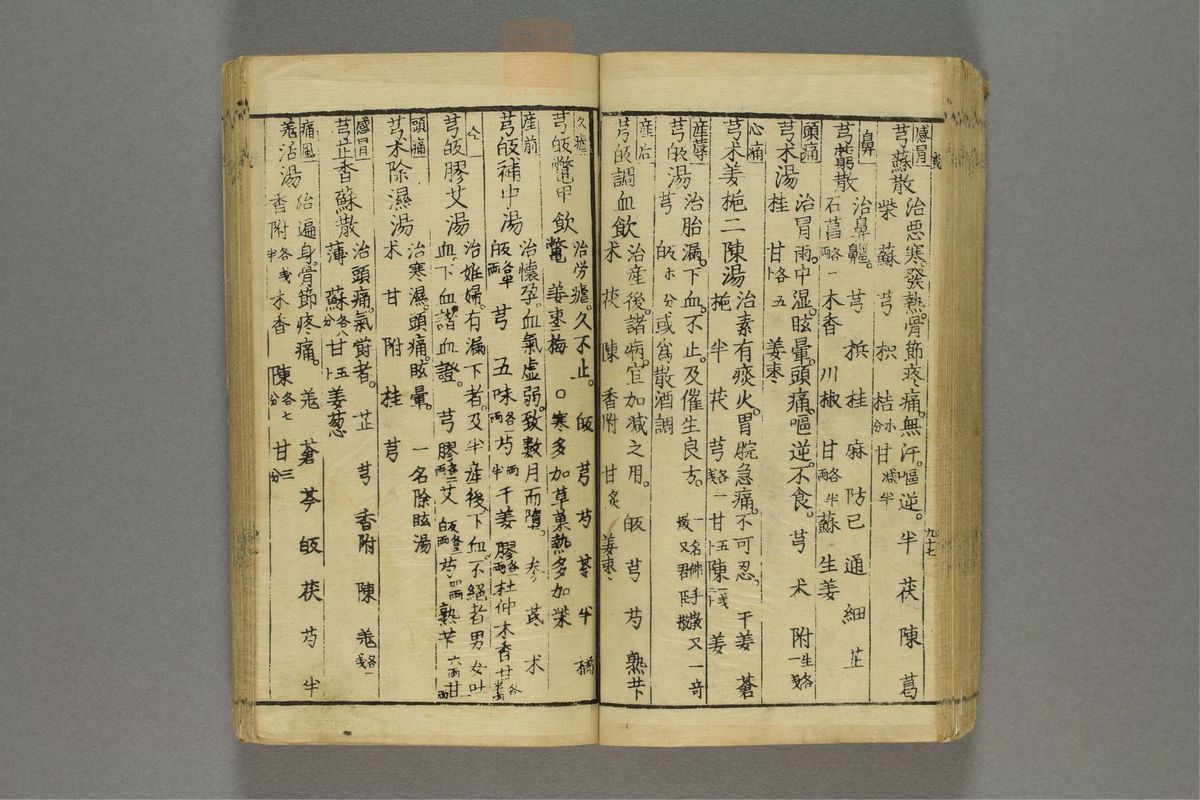 感冒
芎蘇散 治悪寒發熱骨節疼痛無汗嘔逆 半 茯 陳 葛
柴 蘇 芎 枳 桔 甘
九十七
鼻
芎藭散 治鼻齆 芎 梹 桂 麻 防已 通 細 芷
石菖 各一両 木香 川椒 甘 各半両 蘇 生姜
頭痛
芎术湯 治冒雨中湿眩暈頭痛嘔逆不食 芎 术 附
桂 甘 姜枣
心痛
芎术姜梔二陳湯 治素有痰火胃脘急痛不可忍 干姜 蒼
梔 半 茯 芎 甘 陳 姜
産蓐
芎皈湯 治胎漏下血不止及催生良方 一名佛手散又一奇
芎 皈 或為散酒調 散又君臣散
産后
芎皈調血飲 治産後諸病宜加減之用 皈 芎 芍 熟苄
术 茯 陳 香附 甘炙 姜枣
久瘧
芎皈鱉甲飲 治労瘧久不止 皈 芎 芍 苓 半 橘
鱉 姜枣梅 ○寒多加草菓熱多加柴
産前
芎皈補中湯 治懐孕血氣虚弱致数月而墮 参 芪 术
皈 芎 五味 芍 干姜 膠 杜仲 木香 甘
仝
芎皈膠艾湯 治姙婦有漏下者及半産後下血不絕者男女吐
血下血諸血證 芎 膠 艾 皈 芍 四両 熟苄 六両 甘
頭痛
芎术除濕湯 治寒濕頭痛眩暈 一名除眩湯
术 甘 附 桂 芎
感冒
芎芷香蘇散 治頭痛氣欝者 芷 芎 香附 陳 羗
薄 蘇 甘 姜葱
痛風
羗活湯 治遍身骨節疼痛 羗 蒼 芩 皈 茯 芍 半
香附 木香 陳 各七分 甘 三分